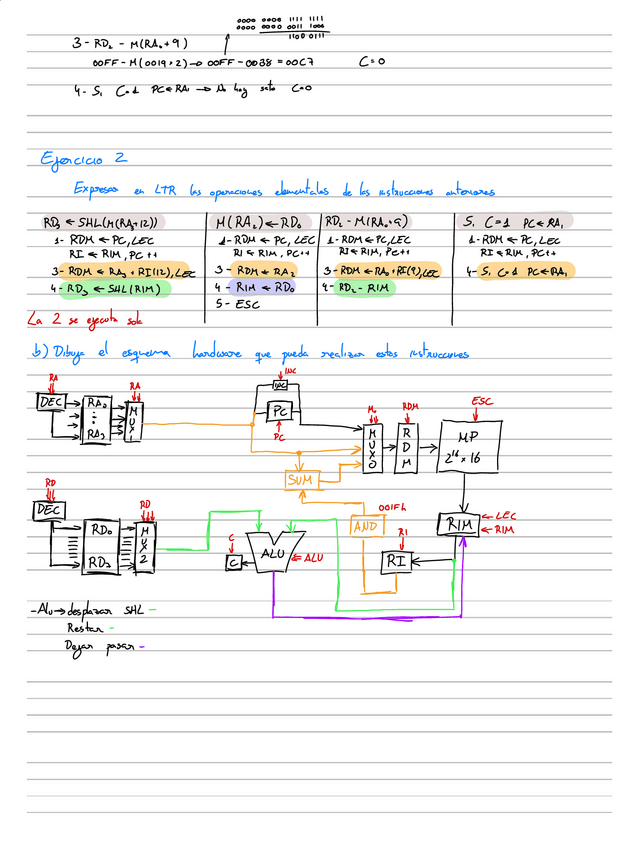 0000 0000 1111 1111
0000 0000 0011 1000
1100 0111
3 - RD₂ - M(RA₀+9)
00FF - M(0019+2) → 00FF - 0038 = 00C7 C=0
4 - S₁ C=1 PC←RA₁ → No hay salto C=0
Ejercicio 2
Expresar en LTR las operaciones elementales de las instrucciones anteriores
RD₃ ← SHL(M(RA₃+12))
1- RDM ← PC, LEC
RI ← RIM, PC++
3 - RDM ← RA₃ + RI(12), LEC
4 - RD₃ ← SHL(RIM)
M(RA₂) ← RD₀
1- RDM ← PC, LEC
RI ← RIM, PC++
3 - RDM ← RA₂
4 - RIM ← RD₀
5 - ESC
RD₂ - M(RA₀+9)
1- RDM ← PC, LEC
RI ← RIM, PC++
3 - RDM ← RA₀ + RI(9), LEC
4 - RD₂ - RIM
S₁ C=1 PC←RA₁
1- RDM ← PC, LEC
RI ← RIM, PC++
4 - S₁ C=1 PC←RA₁
La 2 se ejecuta sola
b) Dibuja el esquema hardware que pueda realizar estas instrucciones
RA
DEC
RA₀
RA₃
RA
MUX1
INC
INC
PC
PC
M₀
MUX0
RDM
RDM
ESC
MP
2¹⁶ × 16
SUM
RD
DEC
RD₀
RD₃
RD
MUX2
C
C
ALU
ALU
001Fh
AND
RI
RI
RIM
LEC
RIM
- Alu → desplazar SHL -
Restar -
Dejar pasar -